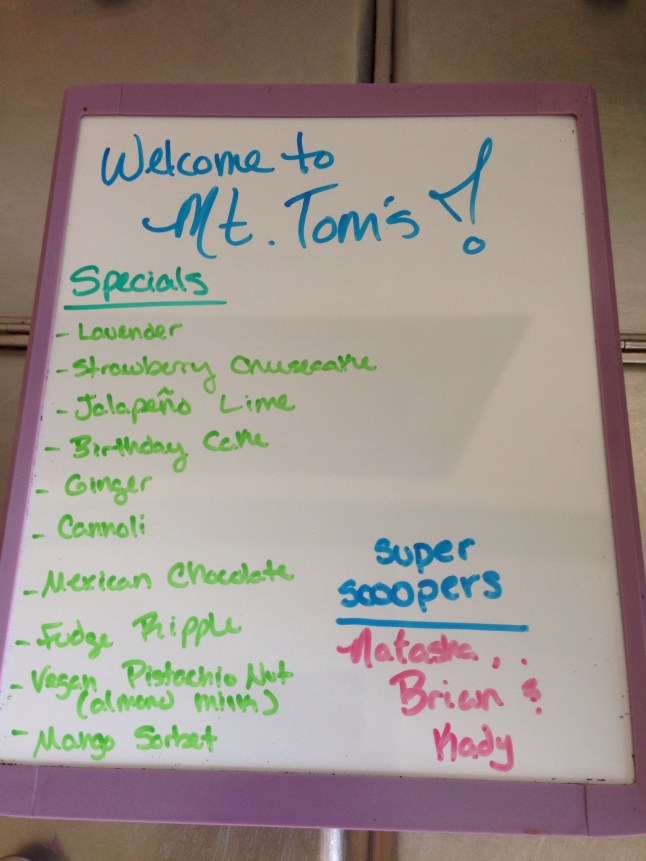 Welcome to
Mt. Tom's!
Specials
- Lavender
- Strawberry Cheesecake
- Jalapeño Lime
- Birthday Cake
- Ginger
- Cannoli
- Mexican Chocolate
- Fudge Ripple
- Vegan Pistachio Nut
(almond milk)
- Mango Sorbet
super
scoopers
Natasha,
Brian &
Kady